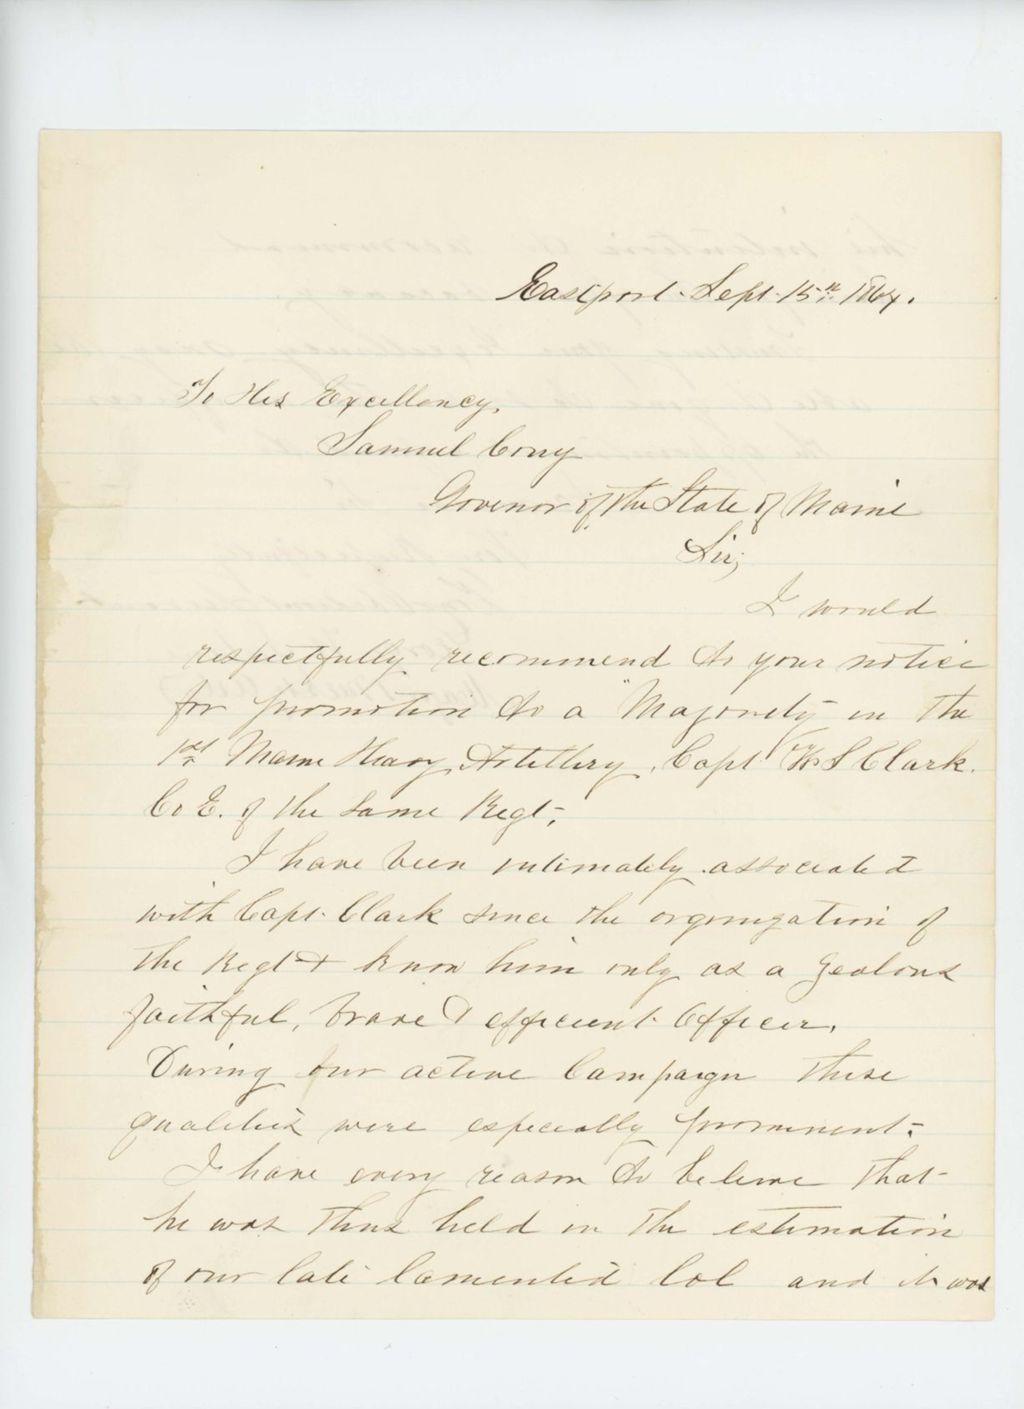 Eastport. Sept. 15th 1864.
To His Excellency,
Samuel Cony
Govenor of the State of Maine
Sir;
I would
respectfully recommend to your notice
for promotion to a "Majority" in the
1st Maine Heavy Artillery, Capt W S Clark.
Co E. of the same Regt;
I have been intimately associated
with Capt. Clark since the organization of
the Regt & know him only as a Zealous
faithful, brave & efficient Officer.
During our active Campaign these
qualities were especially prominent.
I have every reason to believe that
he was thus held in the estimation
of our late lamented Col and it was